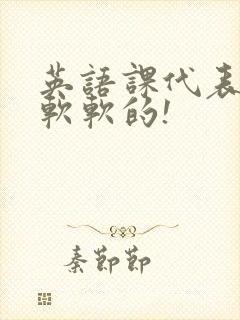 英語課代表
軟軟的!
秦節節